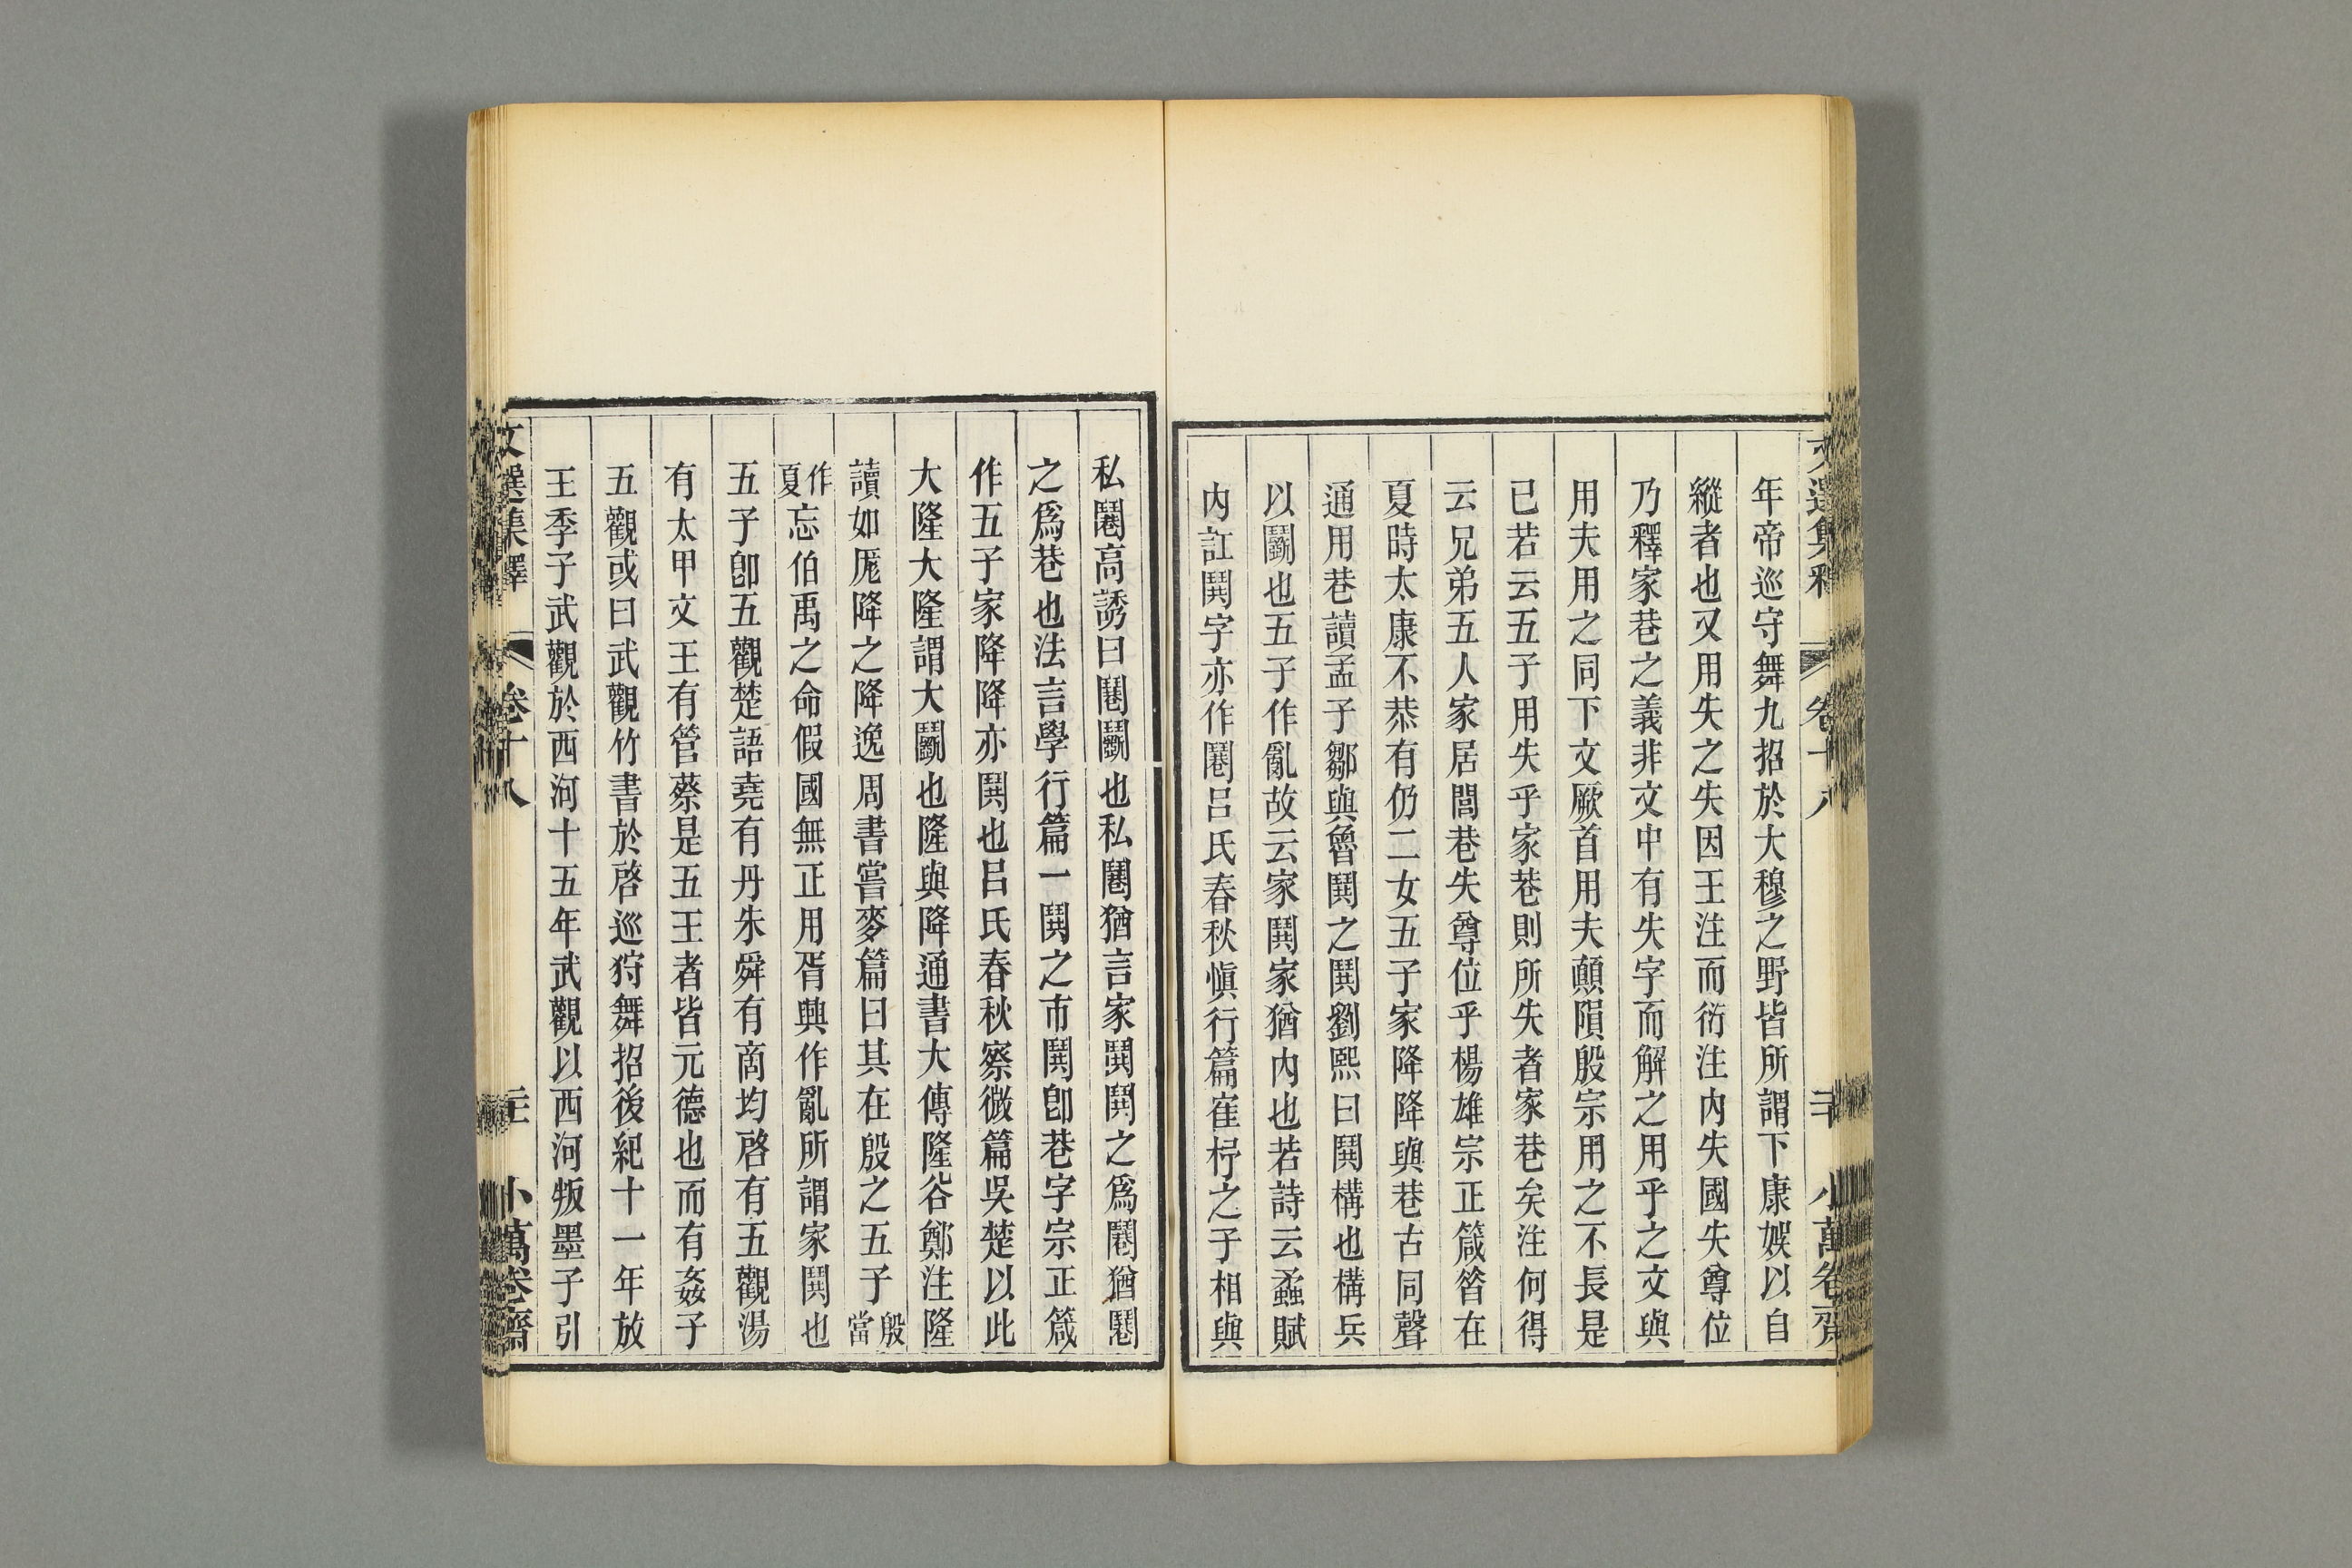 年帝巡守舞九招於大穆之野皆所謂下康娛以自
縱者也又用失之失因王注而衍注内失國失尊位
乃釋家巷之義非文中有失字而解之用乎之文與
用夫用之同下文厥首用夫顛隕殷宗用之不長是
已若云五子用失乎家巷則所失者家巷矣注何得
云兄弟五人家居閭巷失尊位乎楊雄宗正箴昝在
夏時太康不恭有仍二女五子家降降與巷古同聲
通用巷讀孟子鄒與魯鬨之鬨劉熙曰鬨構也構兵
以鬭也五子作亂故云家鬨家猶内也若詩云蟊賊
内訌鬨字亦作鬮吕氏春秋慎行篇崔杼之子相與
私鬮高誘曰鬮鬭也私鬮猶言家鬨鬨之爲鬮猶鬮
之爲巷也法言學行篇一鬨之市鬨卽巷字宗正箴
作五子家降降亦鬨也吕氏春秋察微篇吳楚以此
大隆大隆謂大鬭也隆與降通書大傳隆谷鄭注隆
讀如厖降之降逸周書嘗麥篇曰其在殷之五子殷當
作夏忘伯禹之命假國無正用胥興作亂所謂家鬨也
五子卽五觀楚語堯有丹朱舜有商均啓有五觀湯
有太甲文王有管蔡是五王者皆元德也而有姦子
五觀或曰武觀竹書於啓巡狩舞招後紀十一年放
王季子武觀於西河十五年武觀以西河叛墨子引
文選集釋 卷十八 小萬卷齋